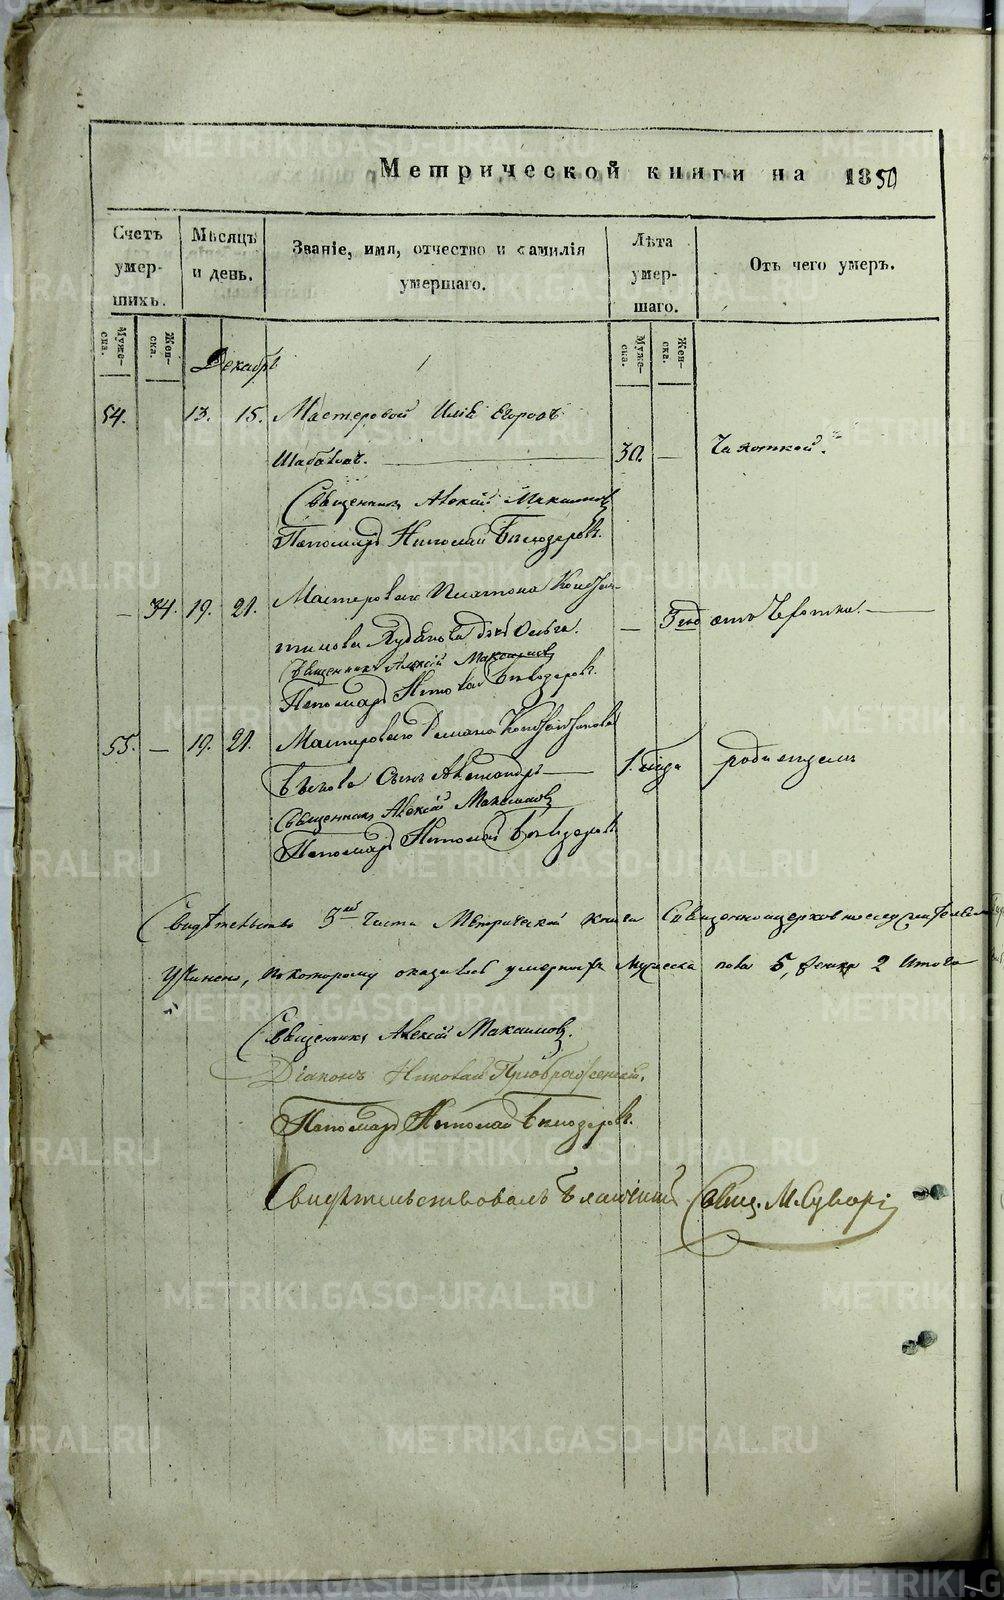 Метрической книги на 1850
Счетъ умершихъ.
Мѣсяцъ и день.
Званіе, имя, отчество и фамилія умершаго.
Лѣта умершаго.
Отъ чего умеръ.
Мужеска.
Женска.
Мужеска.
Женска.
Декабрь
54. 13. 15. Мастеровой Илія Егоровъ
30. Чахоткой.
Священникъ Алексій Максимовъ
Пономарь Николай Бѣлозеровъ.
— 34. 19. 21. Мастероваго Платона Констан-
тинова дочь Ольга. —
Священникъ Алексій Максимовъ
Пономарь Николай Бѣлозеровъ.
55. — 19. 21. Мастероваго Константинова
сынъ Александръ — 1. года родимцемъ
Священникъ Алексій Максимовъ
Пономарь Николай Бѣлозеровъ
Свидѣтельство 3ей части Метрической книги Священноцерковнослужителями
учинено, по которому оказалось умершихъ Мужеска пола 5, женска 2 Итого
Священникъ Алексій Максимовъ.
Діаконъ Николай Преображенскій.
Пономарь Николай Бѣлозеровъ.
Свидѣтельствовалъ Благочинный Свящ. М. Суворовъ
METRIKI.GASO-URAL.RU